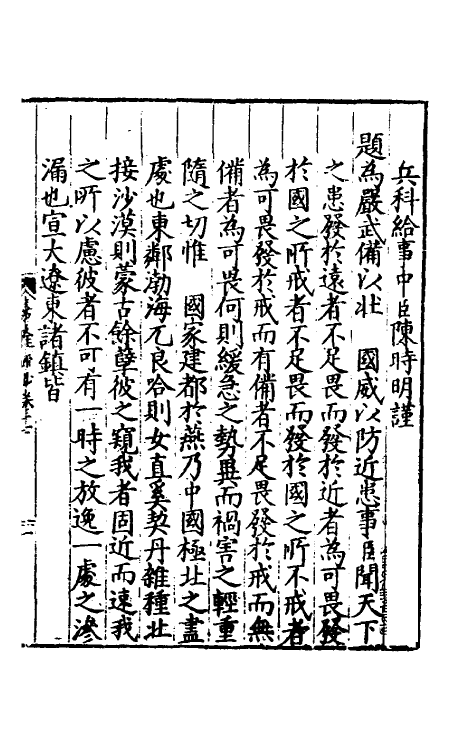 兵科給事中臣陳時明謹
題為嚴武備以壯 國威以防近患事臣聞天下
之患發於遠者不足畏而發於近者為可畏發
於國之所戒者不足畏而發於國之所不戒者
為可畏發於戒而有備者不足畏發於戒而無
備者為可畏何則緩急之勢異而禍害之輕重
隨之切惟 國家建都於燕乃中國極北之盡
處也東鄰渤海兀良哈則女直奚契丹雜種北
接沙漠則蒙古餘孽彼之窺我者固近而速我
之所以慮彼者不可有一時之放逸一處之滲
漏也宣大遼東諸鎮皆